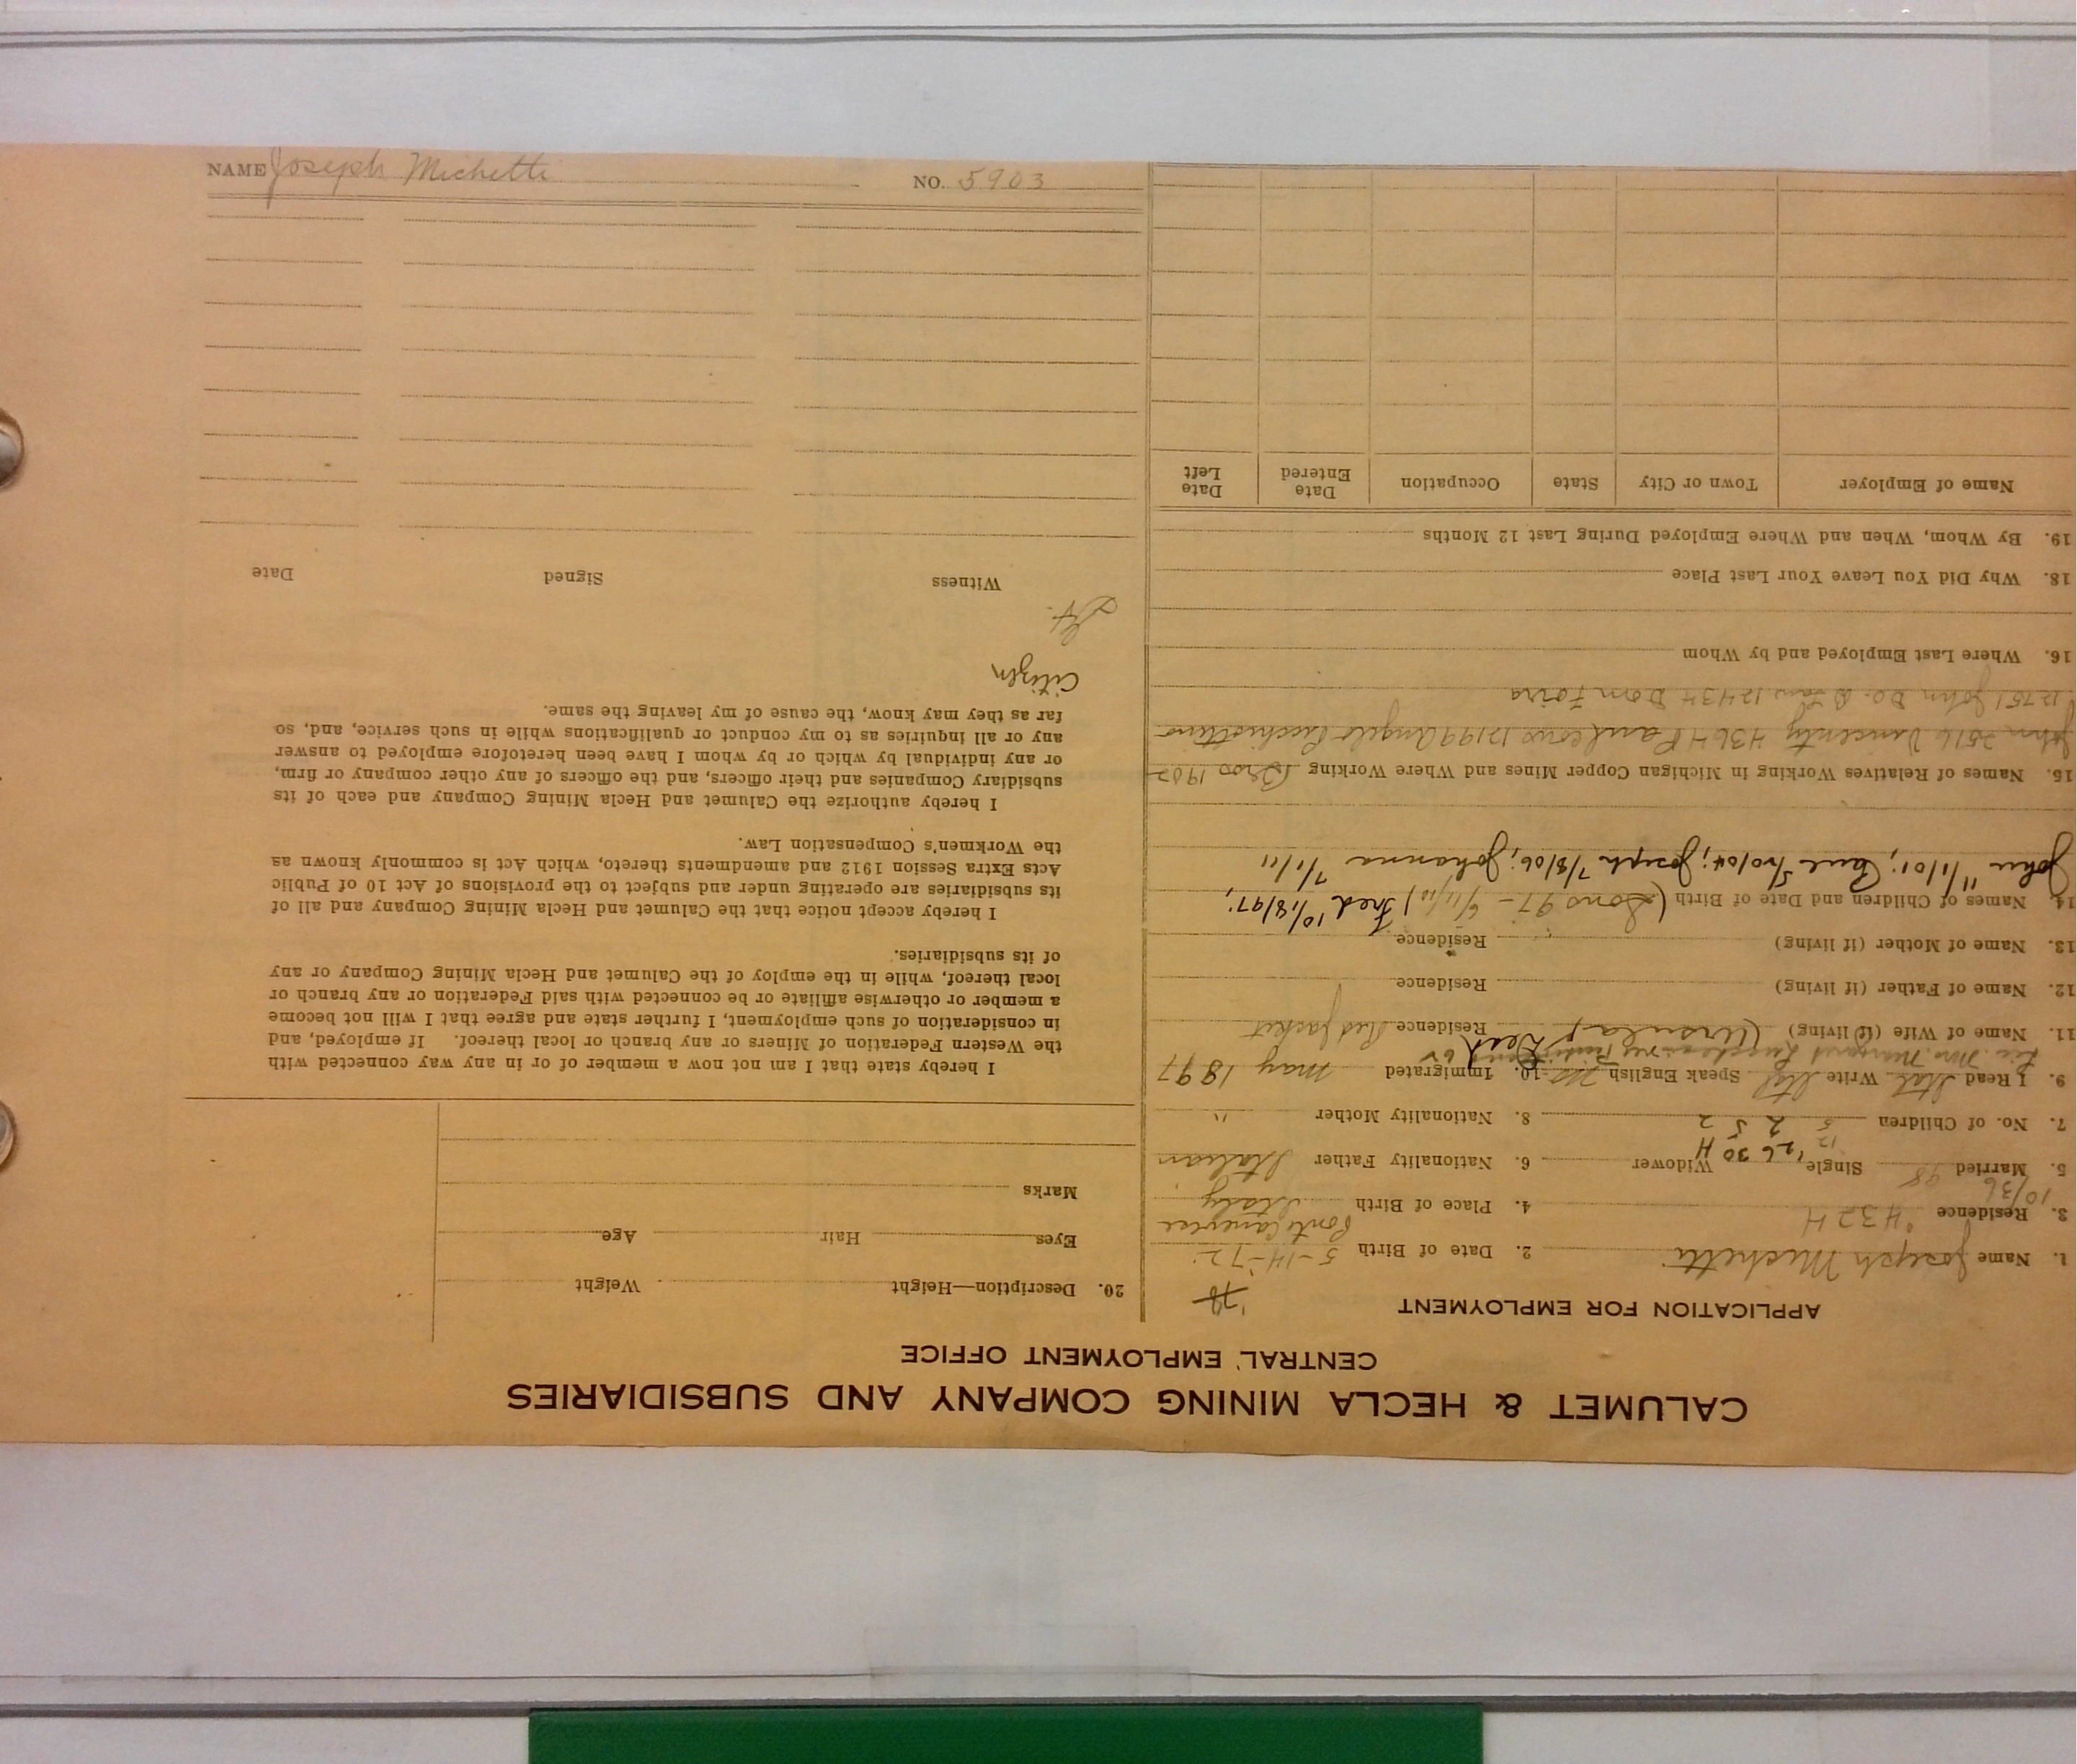 CALUMET & HECLA MINING COMPANY AND SUBSIDIARIES
CENTRAL EMPLOYMENT OFFICE
APPLICATION FOR EMPLOYMENT
'70
1. Name Joseph Michetti 2. Date of Birth 5-14-72
3. Residence 432 H 4. Place of Birth Italy
10/36
5. Married 98 Single Widower 6. Nationality Father Italian
12 '26 30 H
7. No. of Children 5 2 5 2 8. Nationality Mother "
9. I Read Ital Write Ital Speak English 10. Immigrated May 1897
11. Name of Wife (if living) (Ursula) Dead Residence Red Jacket
12. Name of Father (if living) Residence
13. Name of Mother (if living) Residence
14. Names of Children and Date of Birth (Sons 97 - 6/11/10) Fred 10/18/97;
John 11/1/01; 5/20/04; Joseph 7/8/06; Johanna 7/1/11
15. Names of Relatives Working in Michigan Copper Mines and Where Working Bros 1902
John 2516 4364 and 12199 Angelo
12751 John Do. 12434 Dom
16. Where Last Employed and by Whom
18. Why Did You Leave Your Last Place
19. By Whom, When and Where Employed During Last 12 Months
Name of Employer Town or City State Occupation Date Entered Date Left
20. Description—Height Weight
Eyes Hair Age
Marks
I hereby state that I am not now a member of or in any way connected with
the Western Federation of Miners or any branch or local thereof. If employed, and
in consideration of such employment, I further state and agree that I will not become
a member or otherwise affiliate or be connected with said Federation or any branch or
local thereof, while in the employ of the Calumet and Hecla Mining Company or any
of its subsidiaries.
I hereby accept notice that the Calumet and Hecla Mining Company and all of
its subsidiaries are operating under and subject to the provisions of Act 10 of Public
Acts Extra Session 1912 and amendments thereto, which Act is commonly known as
the Workmen's Compensation Law.
I hereby authorize the Calumet and Hecla Mining Company and each of its
subsidiary Companies and their officers, and the officers of any other company or firm,
or any individual by which or by whom I have been heretofore employed to answer
any or all inquiries as to my conduct or qualifications while in such service, and, so
far as they may know, the cause of my leaving the same.
Citizen
Witness Signed Date
NAME Joseph Michetti NO. 5903